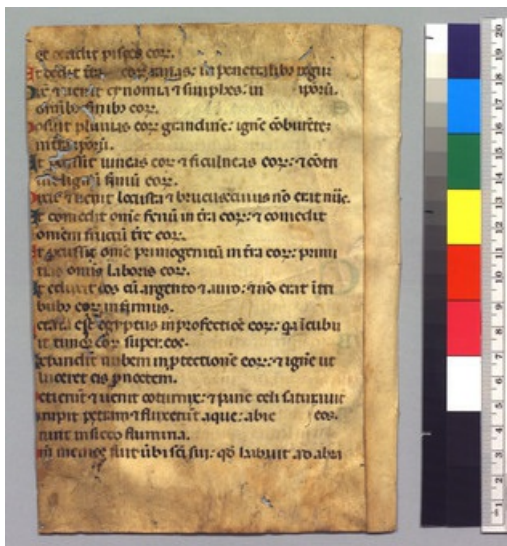 et occidit pisces eoꝝ.
t dedit t̄ra eoꝝ ranas: in penetralibꝰ regū
it ⁊ uenit cynomia ⁊ siniphes: in ipoꝝ.
omībꝰ finibꝰ eoꝝ.
osuit pluuias eoꝝ grandinē: ignē cōburētē
in t̄ra ipoꝝ.
t percussit uineas eoꝝ ⁊ ficulneas eoꝝ: ⁊ cōtri
lignū finiū eoꝝ.
ixit ⁊ uenit locusta ⁊ brucus cuius nō erat nūc.
t comedit om̄e fenū in t̄ra eoꝝ: ⁊ comedit
omem fructū t̄re eoꝝ.
t percussit om̄e primogenitū in t̄ra eoꝝ: primi
tias om̄is laboris eoꝝ.
t eduxit eos cū argento ⁊ auro: ⁊ nō erat ī tri
bubꝰ eoꝝ infirmus.
etata ē egyptus in profectiōe eoꝝ: qa īcubu
it timor eoꝝ super eos.
xpandit nubem in ptectionē eoꝝ: ⁊ ignē ut
luceret eis p noctem.
etierūt ⁊ uenit coturnix: ⁊ pane celi saturauit
irupit petram ⁊ fluxerūt aque: abie eos.
runt in sicco flumina.
m memor fuit ūbi sc̄i sui: qd̄ habuit ad abra